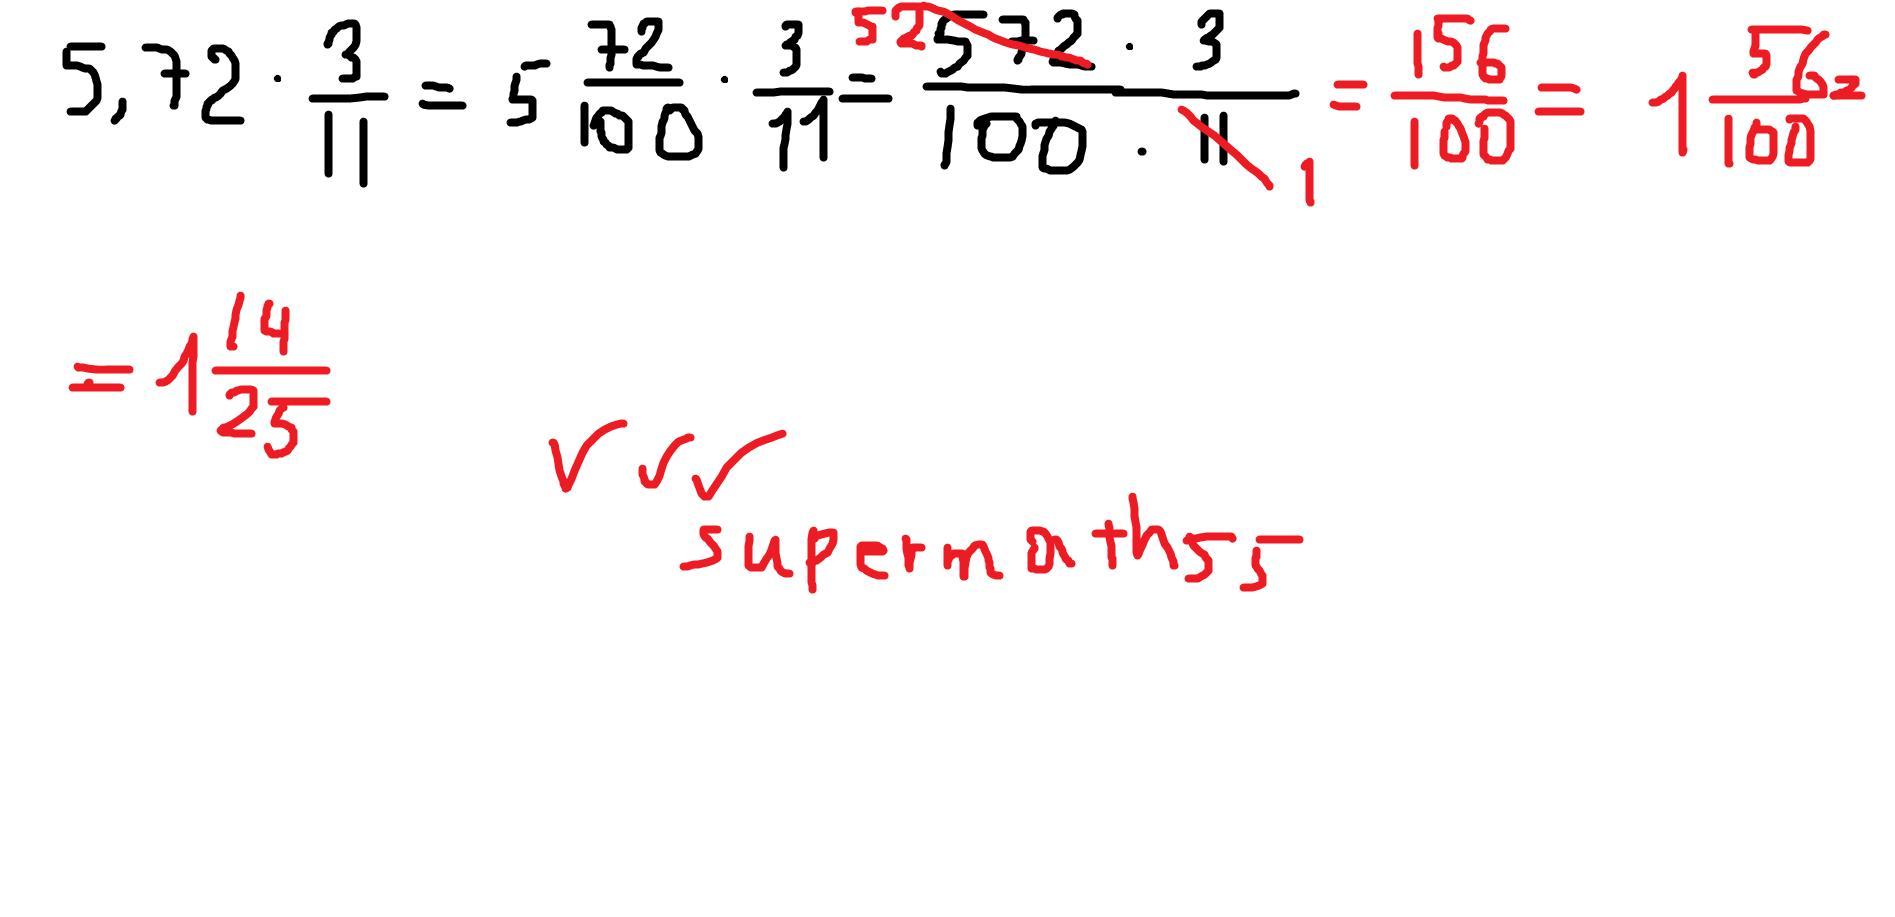 5,72 · 3/11 = 5 72/100 · 3/11 = 52 572 · 3 / 100 · 11 1 = 156/100 = 1 56/100 =
= 1 14/25
supermath55